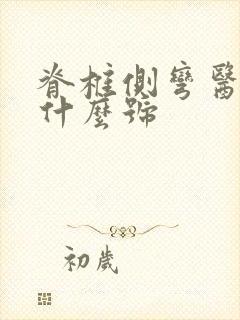 脊柱側彎醫
什麼號
初歲